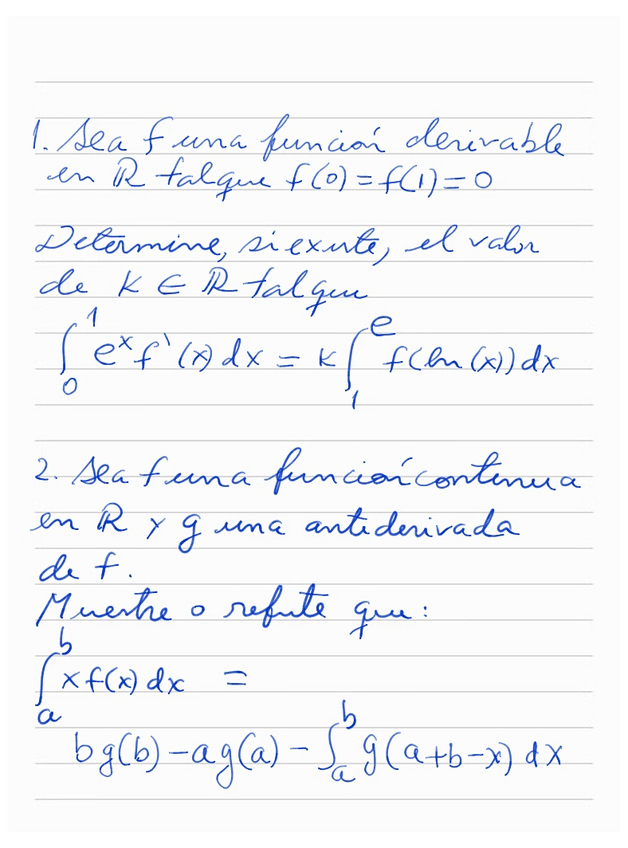 1. Sea f una función derivable
en ℝ tal que f(0) = f(1) = 0
Determine, si existe, el valor
de K ∈ ℝ tal que
∫₀¹ eˣ f'(x) dx = K ∫₁ᵉ f(ln(x)) dx
2. Sea f una función continua
en ℝ y g una antiderivada
de f.
Muestre o refute que:
∫ₐᵇ x f(x) dx =
b g(b) - a g(a) - ∫ₐᵇ g(a+b-x) dx